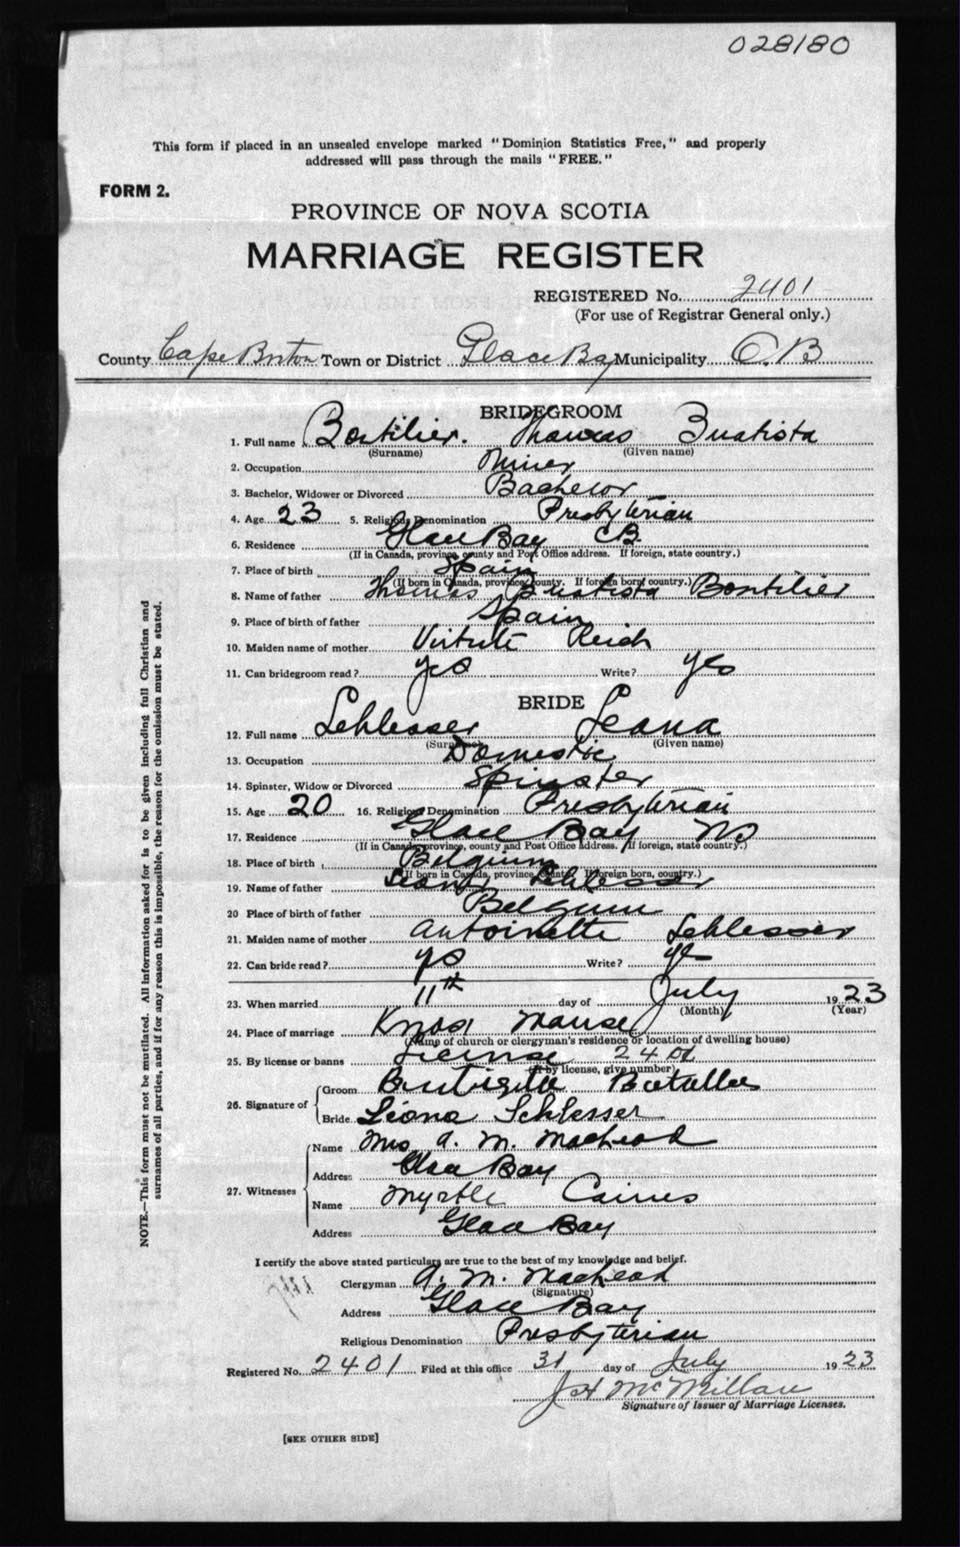 028180
This form if placed in an unsealed envelope marked "Dominion Statistics Free," and properly
addressed will pass through the mails "FREE."
FORM 2.
PROVINCE OF NOVA SCOTIA
MARRIAGE REGISTER
REGISTERED No. 2401
(For use of Registrar General only.)
County Cape Breton Town or District Glace Bay Municipality C.B
BRIDEGROOM
1. Full name Bontilier. Thomas Buatista
(Surname) (Given name)
2. Occupation Miner
3. Bachelor, Widower or Divorced Bachelor
4. Age 23 5. Religious Denomination Presbyterian
6. Residence Glace Bay CB.
(If in Canada, province, county and Post Office address. If foreign, state country.)
7. Place of birth Spain
(If born in Canada, province, county. If foreign born, country.)
8. Name of father Thomas Buatista Bontilier
9. Place of birth of father Spain
10. Maiden name of mother Virtute Reich
11. Can bridegroom read? yes Write? yes
BRIDE
12. Full name Schlesser Leona
(Surname) (Given name)
13. Occupation Domestic
14. Spinster, Widow or Divorced Spinster
15. Age 20 16. Religious Denomination Presbyterian
17. Residence Glace Bay NS
(If in Canada, province, county and Post Office address. If foreign, state country.)
18. Place of birth Belgium
(If born in Canada, province, county. If foreign born, country.)
19. Name of father Schlesser
20 Place of birth of father Belgium
21. Maiden name of mother Antoinette Schlesser
22. Can bride read? yes Write? yes
23. When married 11th day of July 1923
(Month) (Year)
24. Place of marriage Knox Manse
(Name of church or clergyman's residence or location of dwelling house)
25. By license or banns License 2401
(If by license, give number)
26. Signature of Groom Batallee
Bride Liona Schlesser
27. Witnesses Name Mrs A. M. MacLeod
Address Glace Bay
Name Myrtle Cairns
Address Glace Bay
I certify the above stated particulars are true to the best of my knowledge and belief.
Clergyman A. M. MacLeod
(Signature)
Address Glace Bay
Religious Denomination Presbyterian
Registered No. 2401 Filed at this office 31 day of July 1923
J H McMillan
Signature of Issuer of Marriage Licenses.
[SEE OTHER SIDE]
NOTE.—This form must not be mutilated. All information asked for is to be given including full Christian and
surnames of all parties, and if for any reason this is impossible, the reason for the omission must be stated.